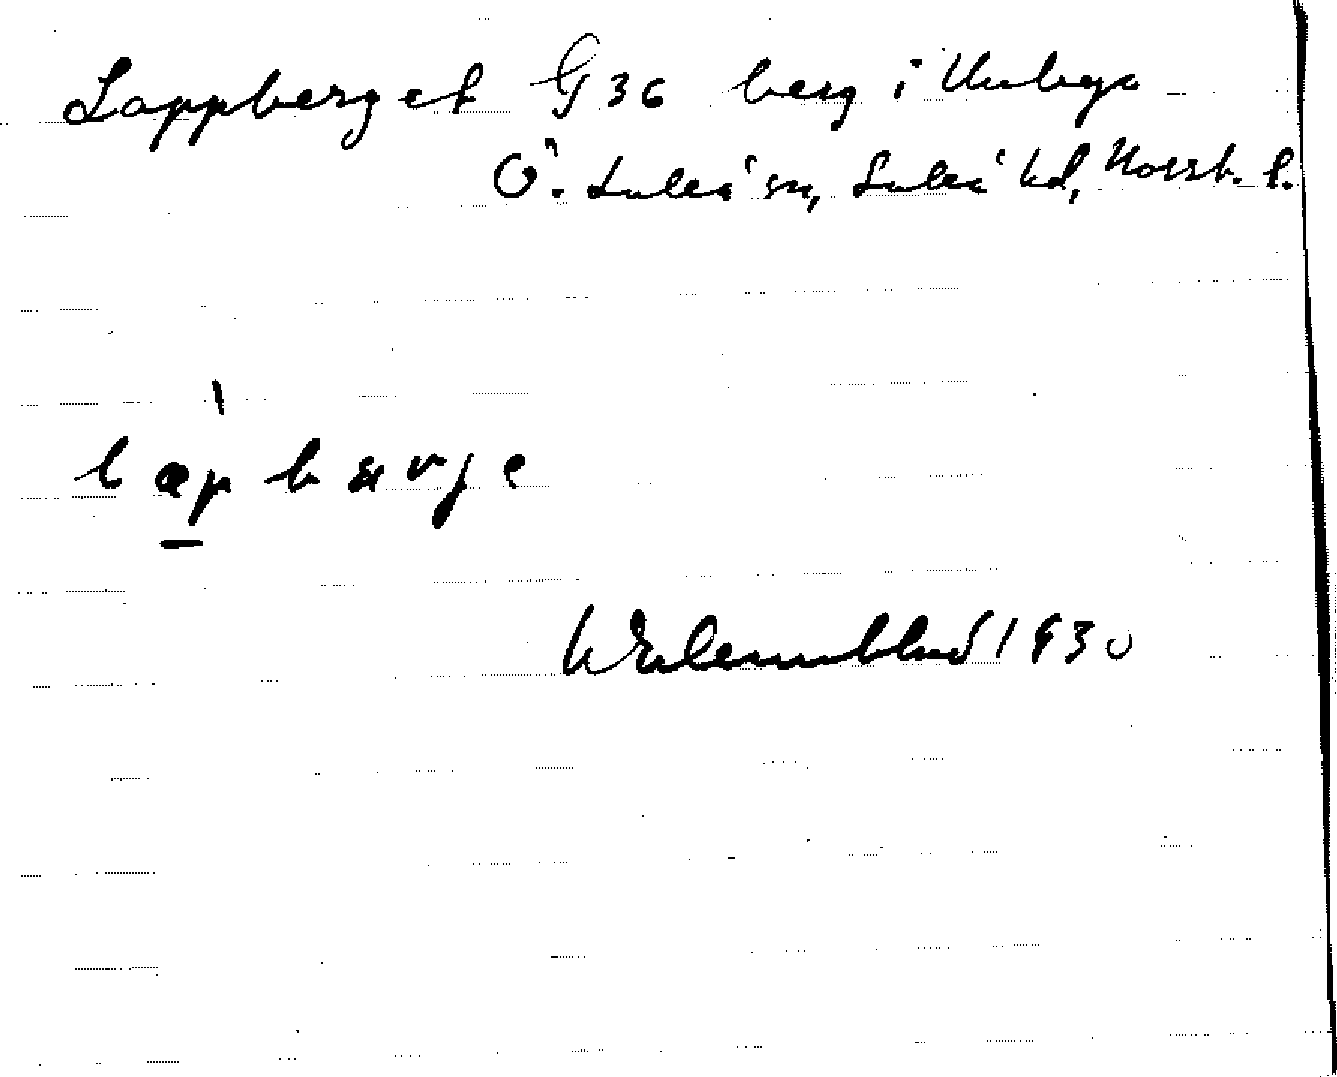 Lappberget G 36 berg i Unbyn
Ö. Luleå sn, Luleå hd, Norrb. l.
læpbærje
Wilenblad 1930